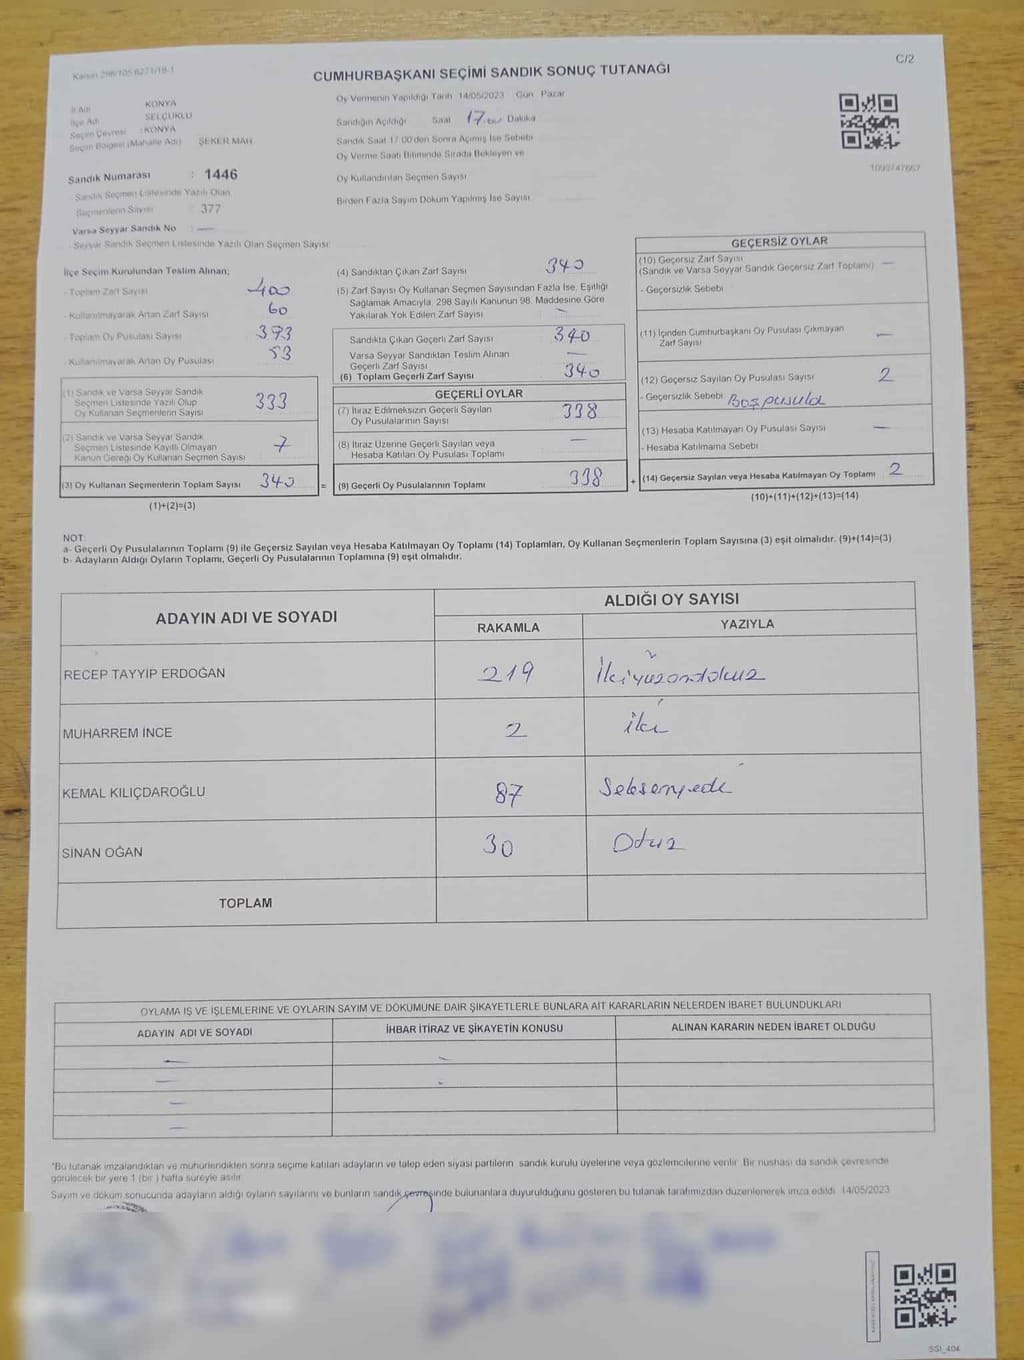 Kanun 298/105 6271/18-1
C/2
CUMHURBAŞKANI SEÇİMİ SANDIK SONUÇ TUTANAĞI
İl Adı KONYA
İlçe Adı SELÇUKLU
Seçim Çevresi : KONYA
Seçim Bölgesi (Mahalle Adı) ŞEKER MAH
Sandık Numarası : 1446
Sandık Seçmen Listesinde Yazılı Olan
Seçmenlerin Sayısı : 377
Varsa Seyyar Sandık No : —
Seyyar Sandık Seçmen Listesinde Yazılı Olan Seçmen Sayısı
Oy Vermenin Yapıldığı Tarih 14/05/2023 Gün Pazar
Sandığın Açıldığı Saat 17.00 Dakika
Sandık Saat 17.00'den Sonra Açılmış İse Sebebi
Oy Verme Saati Bitiminde Sırada Bekleyen ve
Oy Kullandırılan Seçmen Sayısı
Birden Fazla Sayım Döküm Yapılmış İse Sayısı
1095747667
İlçe Seçim Kurulundan Teslim Alınan;
- Toplam Zarf Sayısı 400
- Kullanılmayarak Artan Zarf Sayısı 60
- Toplam Oy Pusulası Sayısı 393
- Kullanılmayarak Artan Oy Pusulası 53
(1) Sandık ve Varsa Seyyar Sandık
Seçmen Listesinde Yazılı Olup
Oy Kullanan Seçmenlerin Sayısı 333
(2) Sandık ve Varsa Seyyar Sandık
Seçmen Listesinde Kayıtlı Olmayan
Kanun Gereği Oy Kullanan Seçmen Sayısı 7
(3) Oy Kullanan Seçmenlerin Toplam Sayısı 340 =
(1)+(2)=(3)
(4) Sandıktan Çıkan Zarf Sayısı 340
(5) Zarf Sayısı Oy Kullanan Seçmen Sayısından Fazla İse, Eşitliği
Sağlamak Amacıyla, 298 Sayılı Kanunun 98. Maddesine Göre
Yakılarak Yok Edilen Zarf Sayısı —
Sandıkta Çıkan Geçerli Zarf Sayısı 340
Varsa Seyyar Sandıktan Teslim Alınan
Geçerli Zarf Sayısı —
(6) Toplam Geçerli Zarf Sayısı 340
GEÇERLİ OYLAR
(7) İtiraz Edilmeksizin Geçerli Sayılan
Oy Pusulalarının Sayısı 338
(8) İtiraz Üzerine Geçerli Sayılan veya
Hesaba Katılan Oy Pusulası Toplamı —
(9) Geçerli Oy Pusulalarının Toplamı 338 +
GEÇERSİZ OYLAR
(10) Geçersiz Zarf Sayısı
(Sandık ve Varsa Seyyar Sandık Geçersiz Zarf Toplamı) —
- Geçersizlik Sebebi
(11) İçinden Cumhurbaşkanı Oy Pusulası Çıkmayan
Zarf Sayısı —
(12) Geçersiz Sayılan Oy Pusulası Sayısı 2
- Geçersizlik Sebebi Boş pusula
(13) Hesaba Katılmayan Oy Pusulası Sayısı —
- Hesaba Katılmama Sebebi
(14) Geçersiz Sayılan veya Hesaba Katılmayan Oy Toplamı 2
(10)+(11)+(12)+(13)=(14)
NOT:
a- Geçerli Oy Pusulalarının Toplamı (9) ile Geçersiz Sayılan veya Hesaba Katılmayan Oy Toplamı (14) Toplamları, Oy Kullanan Seçmenlerin Toplam Sayısına (3) eşit olmalıdır. (9)+(14)=(3)
b- Adayların Aldığı Oyların Toplamı, Geçerli Oy Pusulalarının Toplamına (9) eşit olmalıdır.
ADAYIN ADI VE SOYADI
ALDIĞI OY SAYISI
RAKAMLA YAZIYLA
RECEP TAYYİP ERDOĞAN 219 İkiyüzondokuz
MUHARREM İNCE 2 iki
KEMAL KILIÇDAROĞLU 87 Seksenyedi
SİNAN OĞAN 30 Otuz
TOPLAM
OYLAMA İŞ VE İŞLEMLERİNE VE OYLARIN SAYIM VE DÖKÜMÜNE DAİR ŞİKAYETLERLE BUNLARA AİT KARARLARIN NELERDEN İBARET BULUNDUKLARI
ADAYIN ADI VE SOYADI İHBAR İTİRAZ VE ŞİKAYETİN KONUSU ALINAN KARARIN NEDEN İBARET OLDUĞU
— —
— -
—
—
*Bu tutanak imzalandıktan ve mühürlendikten sonra seçime katılan adayların ve talep eden siyasi partilerin sandık kurulu üyelerine veya gözlemcilerine verilir. Bir nüshası da sandık çevresinde
görülecek bir yere 1 (bir) hafta süreyle asılır.
Sayım ve döküm sonucunda adayların aldığı oyların sayılarını ve bunların sandık çevresinde bulunanlara duyurulduğunu gösteren bu tutanak tarafımızdan düzenlenerek imza edildi. 14/05/2023
SSI_404